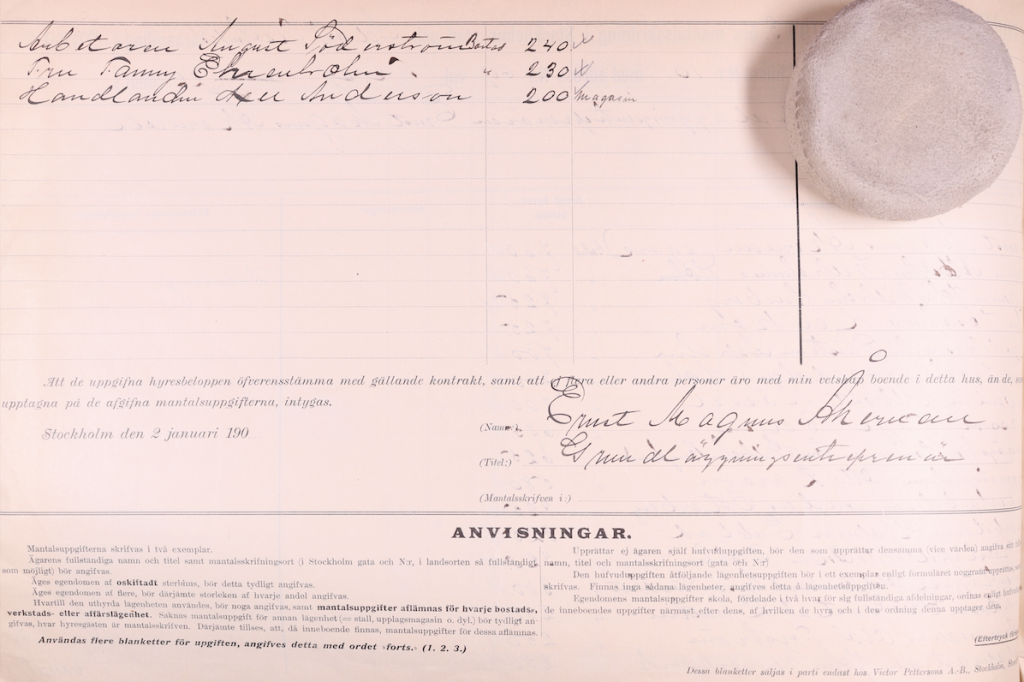 Arbetaren August Söderström Bostad 240
Fru Fanny Ehrenholm " 230
Handlanden Axel Anderson 200 Magasin
Att de uppgifna hyresbeloppen öfverensstämma med gällande kontrakt, samt att ej flera eller andra personer äro med min vetskap boende i detta hus, än de,
upptagna på de afgifna mantalsuppgifterna, intygas.
Stockholm den 2 januari 190
(Namn:) Ernst Magnus Åkerman
(Titel:) Grundläggningsentreprenör
(Mantalsskrifven i:)
ANVISNINGAR.
Mantalsuppgifterna skrifvas i två exemplar.
Ägarens fullständiga namn och titel samt mantalsskrifningsort (i Stockholm gata och N:r, i landsorten så fullständigt
som möjligt) bör angifvas.
Äges egendomen af oskiftadt sterbhus, bör detta tydligt angifvas.
Äges egendomen af flere, bör därjämte storleken af hvarje andel angifvas.
Hvartill den uthyrda lägenheten användes, bör noga angifvas, samt mantalsuppgifter aflämnas för hvarje bostads-,
verkstads- eller affärslägenhet. Saknas mantalsuppgift för annan lägenhet (= stall, upplagsmagasin o. dyl.) bör tydligt an-
gifvas, hvar hyresgästen är mantalsskrifven. Därjämte tillses, att, då inneboende finnas, mantalsuppgifter för dessa aflämnas.
Användas flere blanketter för upgiften, angifves detta med ordet »forts.» (1. 2. 3.)
Upprättar ej ägaren själf hufvuduppgiften, bör den som upprättar densamma (vice värden) angifva sitt
namn, titel och mantalsskrifningsort (gata och N:r)
Den hufvuduppgiften åtföljande lägenhetsuppgiften bör i ett exemplar enligt formuläret noggrant
skrifvas. Finnas inga sådana lägenheter, angifves detta å lägenhetsuppgiften.
Egendomens mantalsuppgifter skola, fördelade i två hvar för sig fullständiga afdelningar, ordnas enligt
de inneboendes uppgifter närmast efter dens, af hvilken de hyra och i den ordning denna upptager dem.
(Eftertryck
Dessa blanketter säljas i parti endast hos Victor Pettersons A.-B., Stockholm,